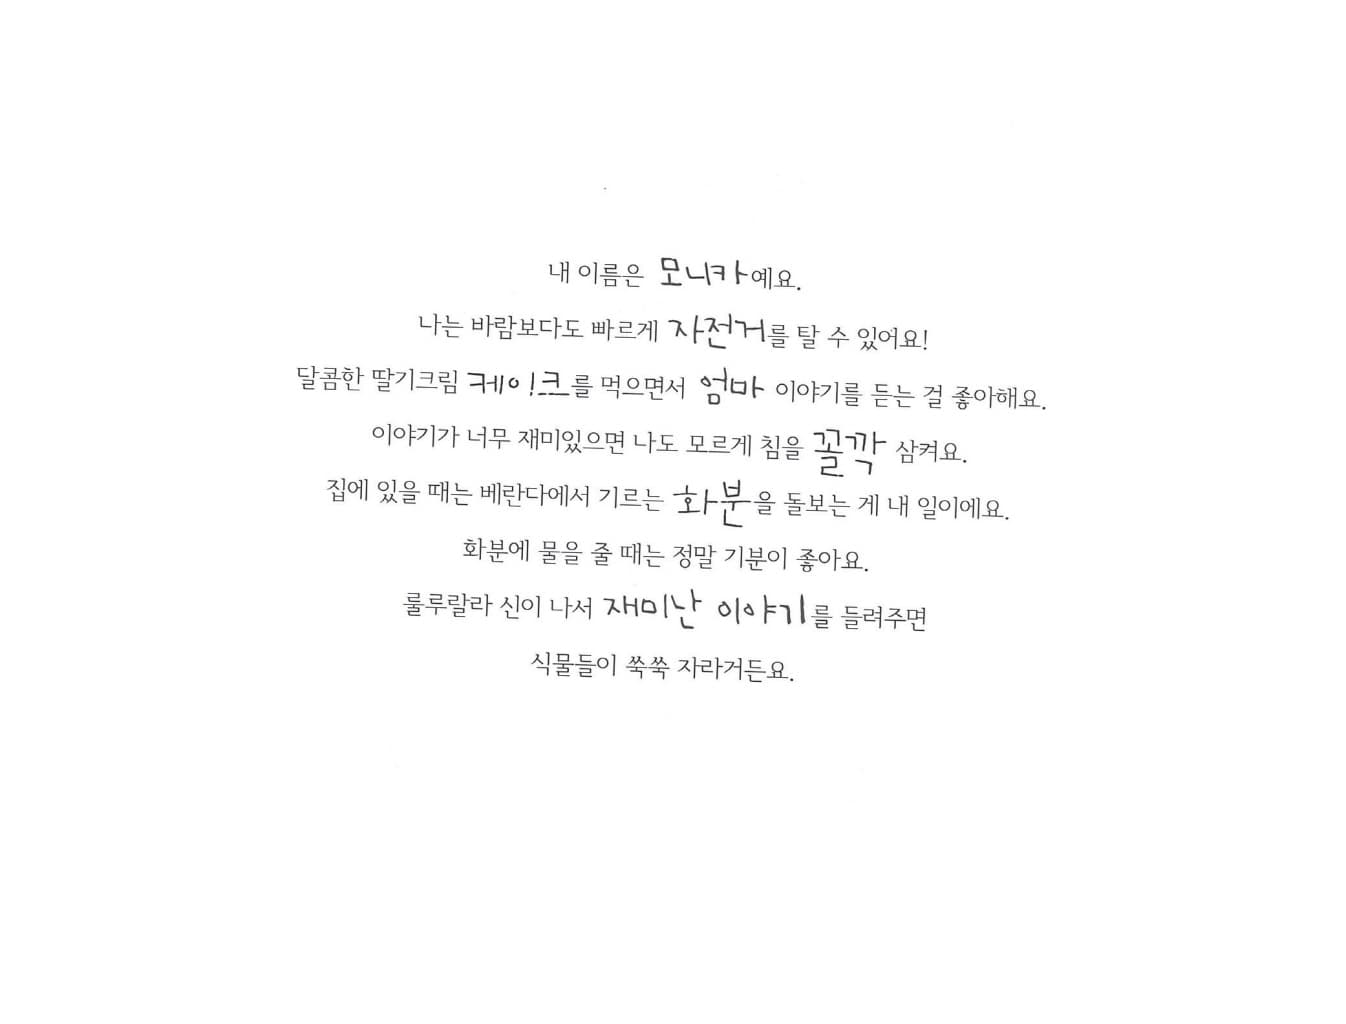 내 이름은 모니카예요.
나는 바람보다도 빠르게 자전거를 탈 수 있어요!
달콤한 딸기크림 케이크를 먹으면서 엄마 이야기를 듣는 걸 좋아해요.
이야기가 너무 재미있으면 나도 모르게 침을 꼴깍 삼켜요.
집에 있을 때는 베란다에서 기르는 화분을 돌보는 게 내 일이에요.
화분에 물을 줄 때는 정말 기분이 좋아요.
룰루랄라 신이 나서 재미난 이야기를 들려주면
식물들이 쑥쑥 자라거든요.